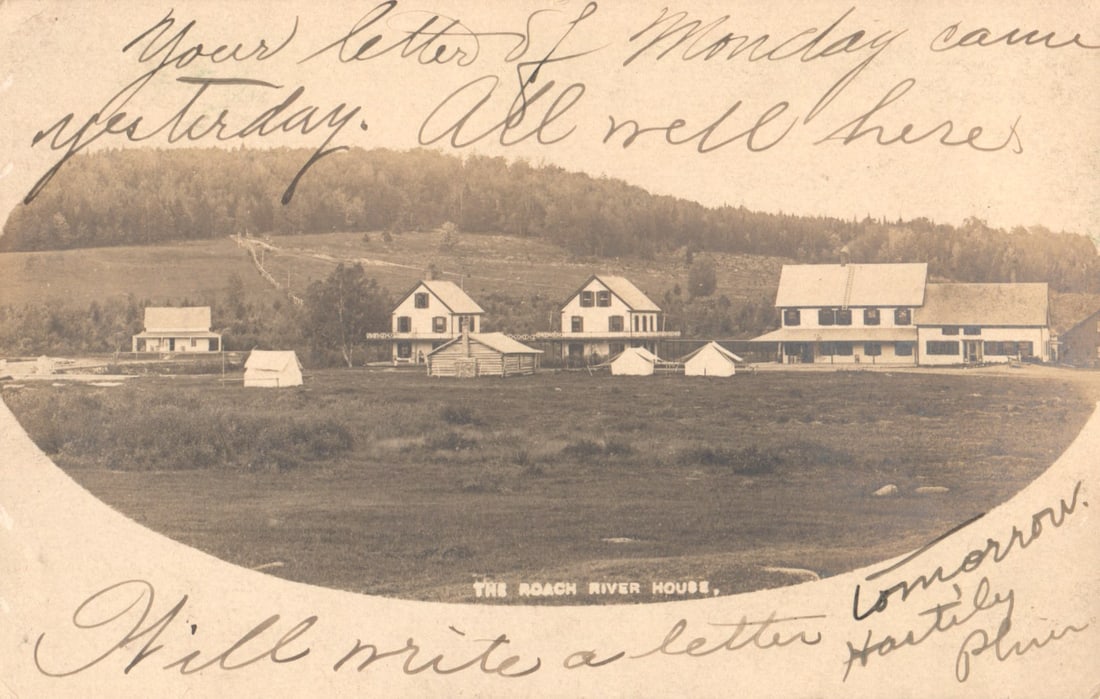 Your letter of Monday came
yesterday. All well here
THE ROACH RIVER HOUSE,
Will write a letter tomorrow.
Hastily